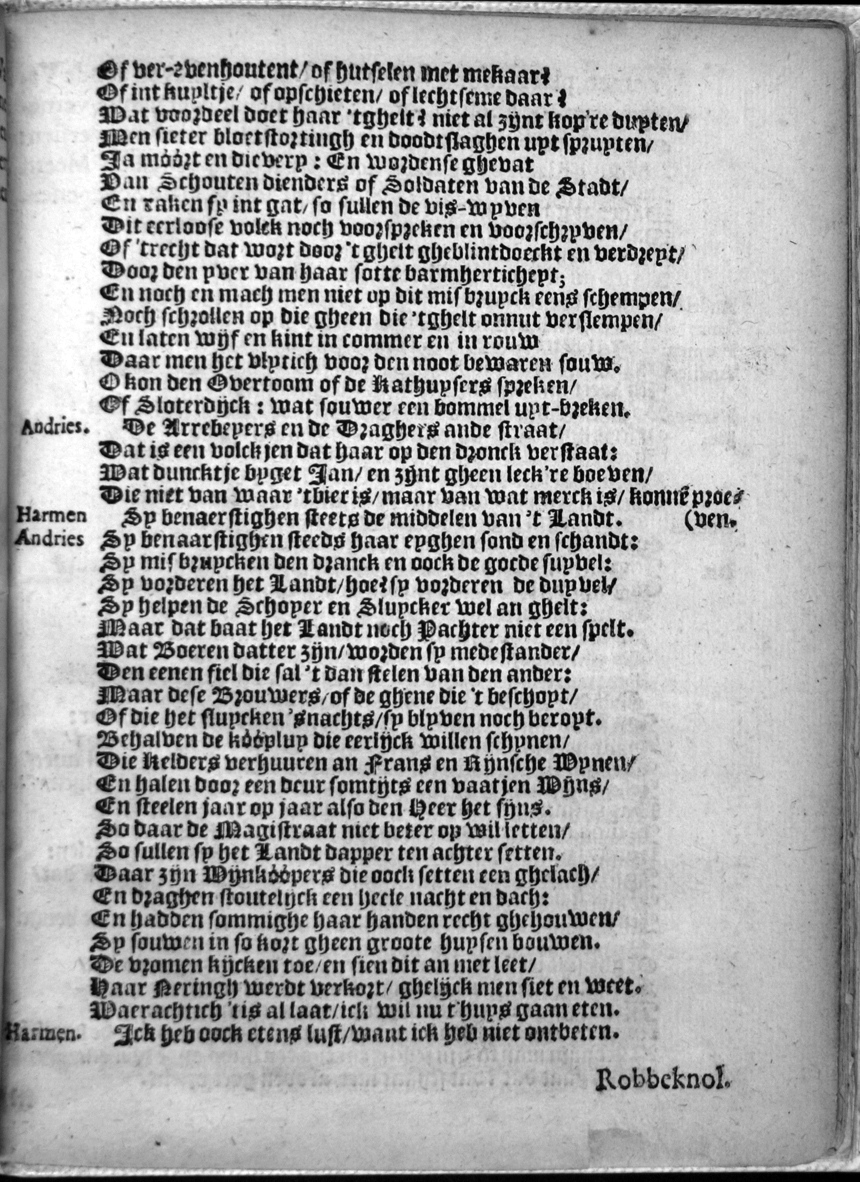 Of ver-evenhoutent/ of hutselen met mekaar?
Of int kuyltje/ of opschieten/ of lechtseme daar?
Wat voordeel doet haar 'tghelt? niet al zijnt kop're duyten/
Men sieter bloetstortingh en doodtslaghen uyt spruyten/
Ja móórt en dievery: En wordense ghevat
Van Schouten dienders of Soldaten van de Stadt/
En raken sy int gat/ so sullen de vis-wyven
Dit eerloose volck noch voorspreken en voorschryven/
Of 'trecht dat wort door 't ghelt gheblintdoeckt en verdreyt/
Door den yver van haar sotte barmhertichept;
En noch en mach men niet op dit misbruyck eens schempen/
Noch schrollen op die gheen die 'tghelt onnut verslempen/
En laten wijf en kint in commer en in rouw
Daar men het vlytich voor den noot bewaren souw.
O kon den Overtoom of de Kathuysers spreken/
Of Sloterdijck: wat souwer een bommel uyt-breken.
Andries. De Arrebeyers en de Draghers ande straat/
Dat is een volckjen dat haar op den dronck verstaat:
Wat duncktje byget Jan/ en zijnt gheen leck're boeven/
Die niet van waar 'tbier is/ maar van wat merck is/ konnē proe-
Harmen Sy benaerstighen steets de middelen van 't Landt. (ven.
Andries Sy benaarstighen steeds haar eyghen sond en schandt:
Sy misbruycken den dranck en oock de goede suyvel:
Sy vorderen het Landt/ hoe? sy vorderen de duyvel/
Sy helpen de Schoyer en Sluycker wel an ghelt:
Maar dat baat het Landt noch Pachter niet een spelt.
Wat Boeren datter zijn/ worden sy medestander/
Den eenen fiel die sal 't dan stelen van den ander:
Maar dese Brouwers/ of de ghene die 't beschoyt/
Of die het sluycken 'snachts/ sy blyven noch beroyt.
Behalven de kóópluy die eerlijck willen schynen/
Die Kelders verhuuren an Frans en Rijnsche Wynen/
En halen door een deur somtijts een vaatjen Wijns/
En steelen jaar op jaar also den Heer het sijns.
So daar de Magistraat niet beter op wil letten/
So sullen sy het Landt dapper ten achter setten.
Daar zijn Wijnkóópers die oock setten een ghelach/
En draghen stoutelijck een heele nacht en dach:
En hadden sommighe haar handen recht ghehouwen/
Sy souwen in so kort gheen groote huysen bouwen.
De vromen kijcken toe/ en sien dit an met leet/
Haar Neringh werdt verkort/ ghelijck men siet en weet.
Waerachtich 'tis al laat/ ick wil nu t'huys gaan eten.
Harmen. Ick heb oock etens lust/ want ick heb niet ontbeten.
Robbeknol.